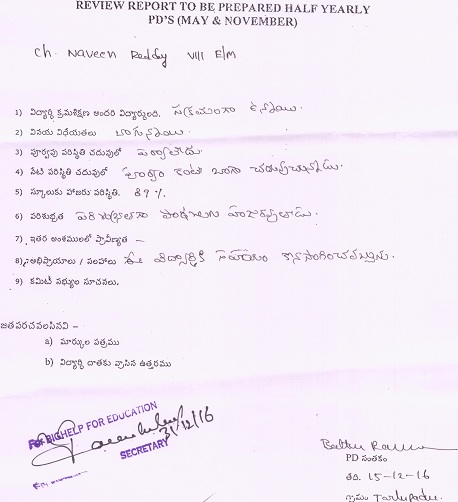 REVIEW REPORT TO BE PREPARED HALF YEARLY
PD'S (MAY & NOVEMBER)
Ch. Naveen Reddy VIII E/M
1) విద్యార్థి క్రమశిక్షణ అందరి విద్యార్థుల్లో. సక్రమంగా ఉన్నాయి.
2) వినయ విధేయతలు బాగున్నాయి.
3) పూర్వపు పరిస్థితి చదువులో
4) నేటి పరిస్థితి చదువులో కంటే బాగా చదువుచున్నాడు.
5) స్కూలుకు హాజరు పరిస్థితి. 89%.
6) పరిశుభ్రత పరిశుభ్రంగా
7) ఇతర అంశములలో ప్రావీణ్యత –
8) అభిప్రాయాలు / సలహాలు ఈ విద్యార్థికి సహాయం
9) కమిటీ సభ్యుల సూచనలు.
జతపరచవలసినవి –
a) మార్కుల పత్రము
b) విద్యార్థి దాతకు వ్రాసిన ఉత్తరము
For BIGHELP FOR EDUCATION
31/12/16
SECRETARY
PD సంతకం
తేది. 15-12-16
గ్రామం Tarlupadu.